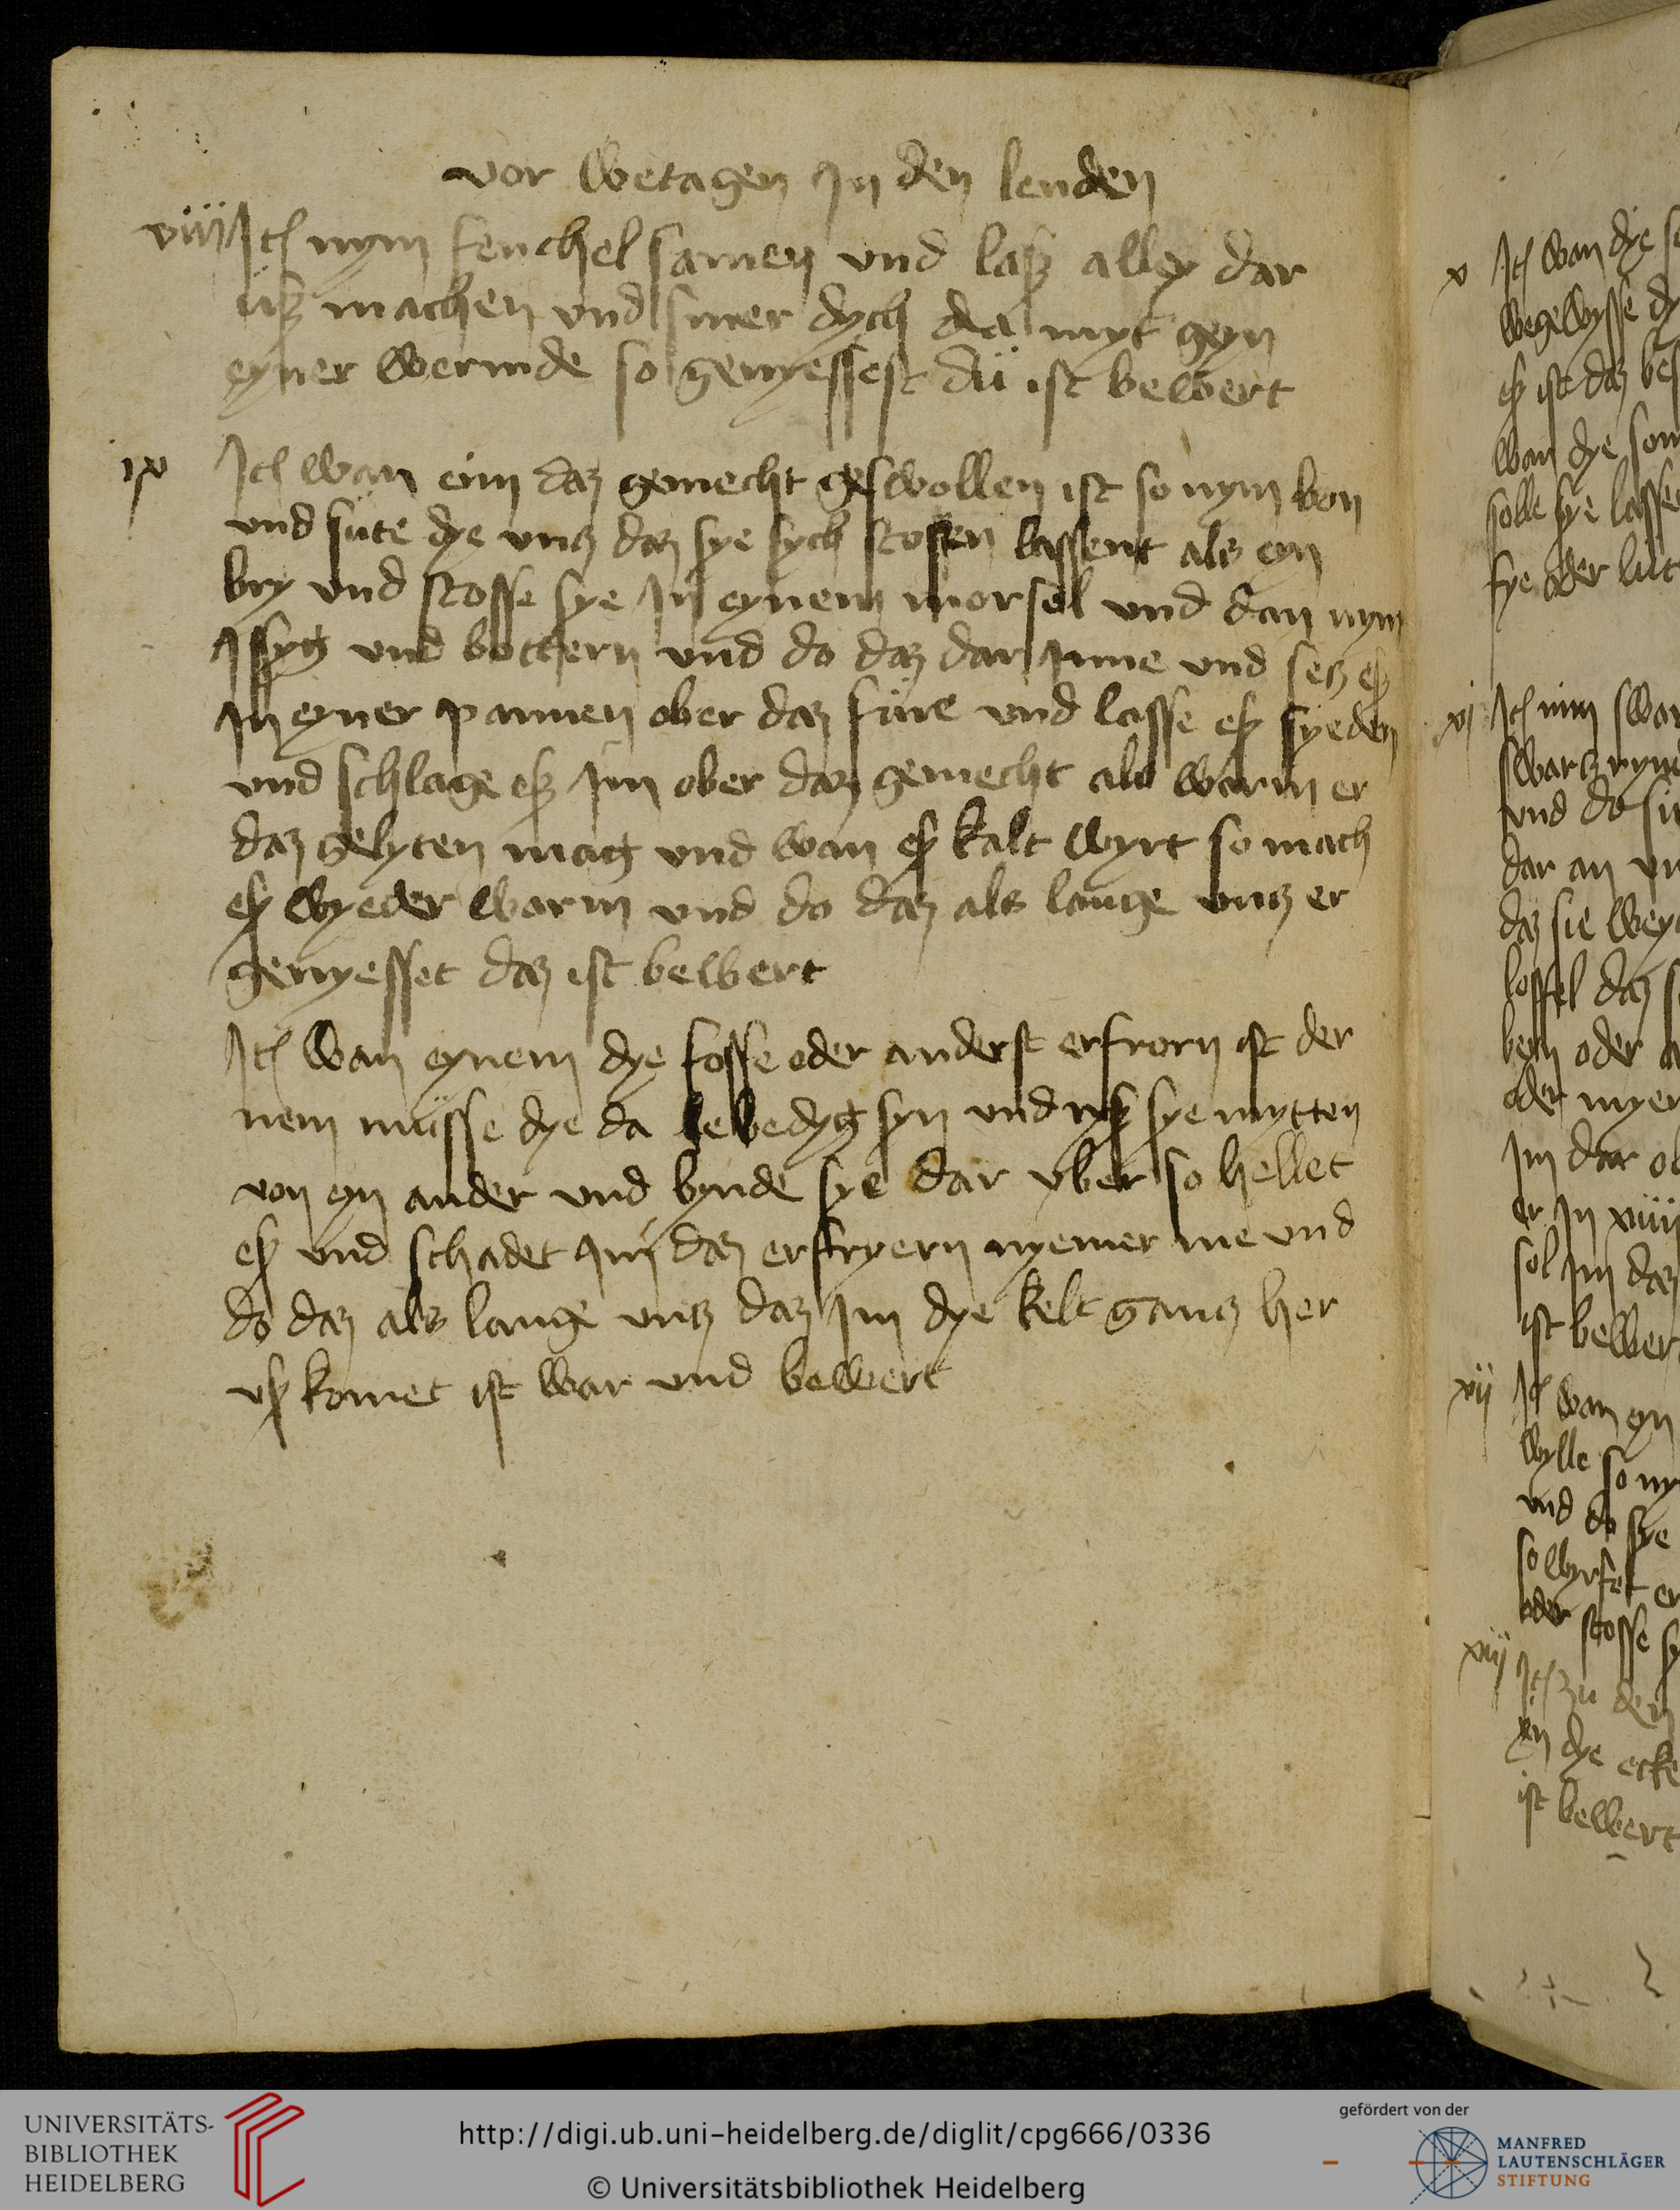 vor wetagen In den lenden
viiij Jt(em) nym fenchel samen vnd laß alley dar
üß machen vnd smer dych da myt geyn
eyner wermde so genyessest dü ist bewert
ix Jt(em) wan eim daz gemecht geswollen ist so nym bon
vnd süte dye vntz daz sye sych stossen lassent als eyn
bry vnd stosse sye In eynem morsel vnd dan nym
Issyg vnd bottern vnd do daz dar Inne vnd setz eß
In eyner pannen ober daz füre vnd lasse eß syeden
vnd schlage eß Im ober daz gemecht als warm er
daz gelyten mag vnd wan eß kalt wyrt so mach
eß wyeder warm vnd do daz als lange vntz er
genyesset daz ist bewert
Jt(em) wan eynem dye fosse oder anderst erfrorn ist der
nem müsse dye da lebedyg syn vnd ryß sye mytten
von eyn ander vnd bynde sye dar vber so hellet
eß vnd schadet Im daz erfryern nyemer me vnd
do daz als lange vntz daz Im dye kelt gantz her
vß komet ist war vnd bewert
x Jt(em) wan dye
wegewysse dy
eß ist daz bes
wan dye son
solle sye lasse
sye oder lüt
xj Jt(em) nim swar
swartz ryn
vnd do
dar an vn
daz sie wey
loffel daz s
beyn oder
oder myer
Im dar ob
er In xiiij
sol Im daz
ist bewer
xij Jt(em) wan eyn
wylle so ny
vnd do sye
so wyrfet er
oder stosse sy
xiij Jt(em) zu den
In dye ecke
ist bewert
UNIVERSITÄTS-
BIBLIOTHEK
HEIDELBERG
http://digi.ub.uni-heidelberg.de/diglit/cpg666/0336
© Universitätsbibliothek Heidelberg
gefördert von der
MANFRED
LAUTENSCHLÄGER
STIFTUNG